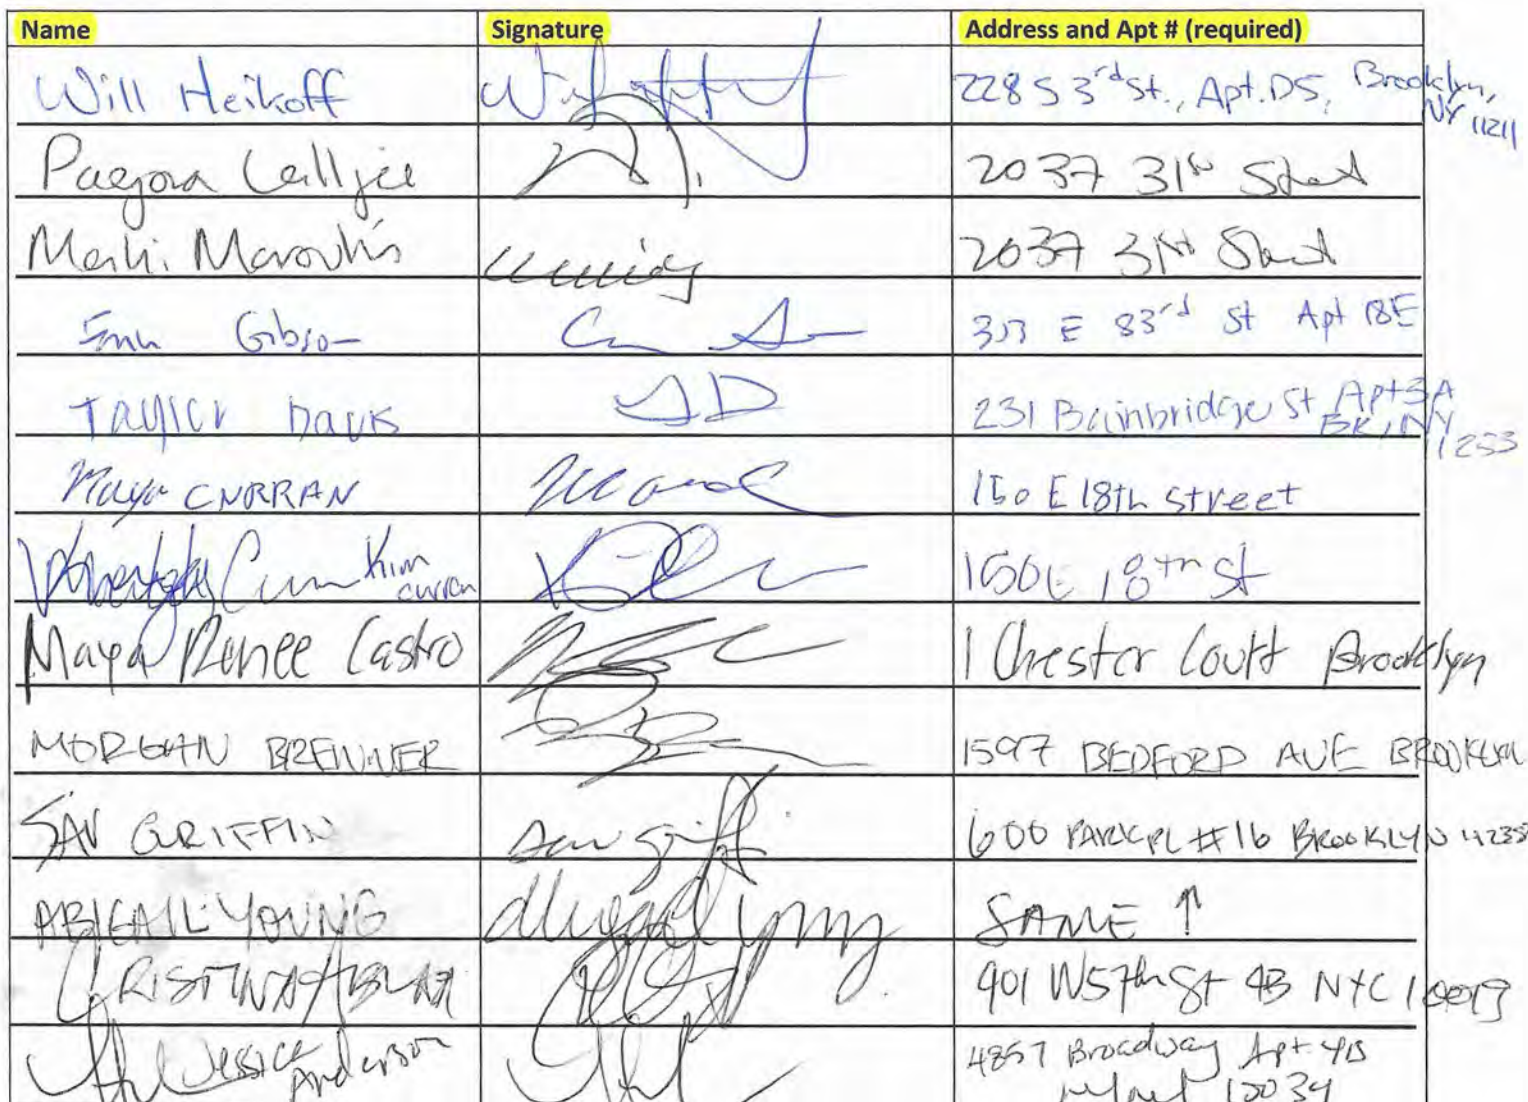 Name Signature Address and Apt # (required)
Will Heikoff 228 S 3rd St., Apt. D5, Brooklyn, NY 11211
2037 31st Street
2037 31st Street
Gibson 303 E 83rd St Apt 18E
Taylor Davis SD 231 Bainbridge St Apt 3A
BK, NY
11233
Maya CURRAN 150 E 18th street
Kim curran 150 E 18th St
Maya Renee Castro 1 Chester Court Brooklyn
MORGAN BRENNER 1597 BEDFORD AVE BROOKLYN
SAV GRIFFIN Sav Griffin 600 PARK PL #16 BROOKLYN 11238
ABIGAIL YOUNG Abigail Young SAME ↑
401 W57th St 4B NYC 10019
Jessica Anderson 4857 Broadway Apt 4B
10034